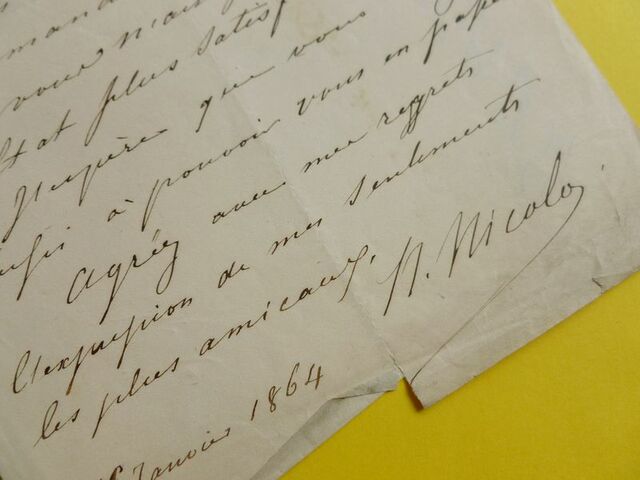 vous
plus satisf
J'espère que vous
à pouvoir vous en
Agréez avec mes regrets
l'expression de mes sentiments
les plus amicaux,
N. Nicolo
Janvier 1864